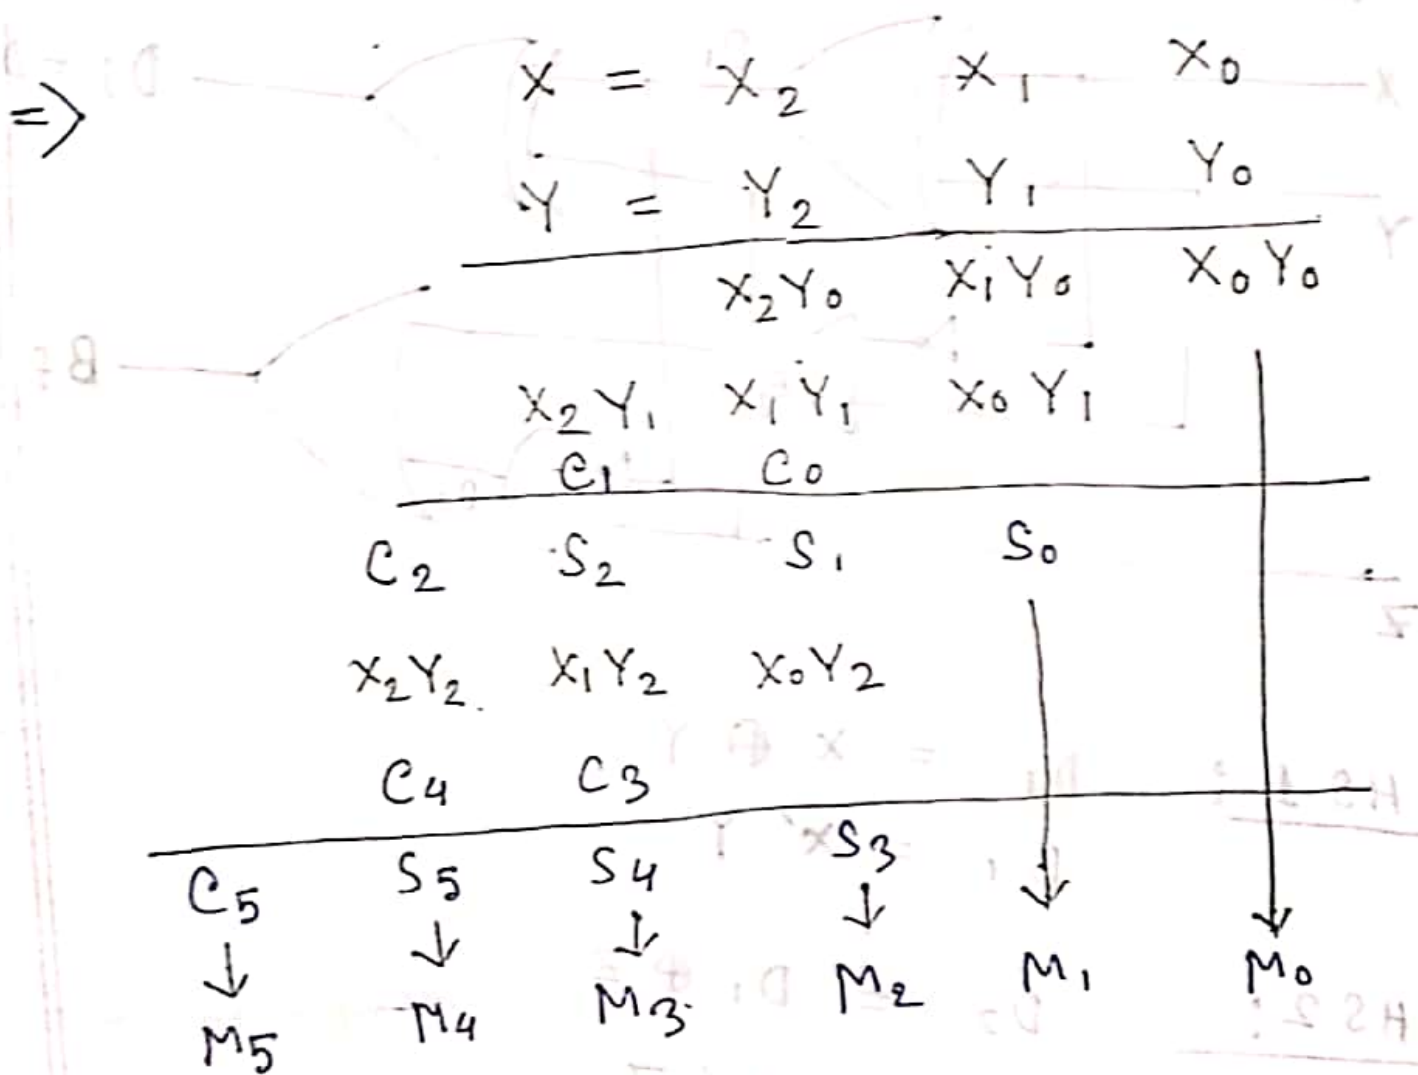 => X = X₂ X₁ X₀
Y = Y₂ Y₁ Y₀
X₂Y₀ X₁Y₀ X₀Y₀
X₂Y₁ X₁Y₁ X₀Y₁
C₁ C₀
C₂ S₂ S₁ S₀
X₂Y₂ X₁Y₂ X₀Y₂
C₄ C₃
C₅ S₅ S₄ S₃
↓ ↓ ↓ ↓ ↓ ↓
M₅ M₄ M₃ M₂ M₁ M₀